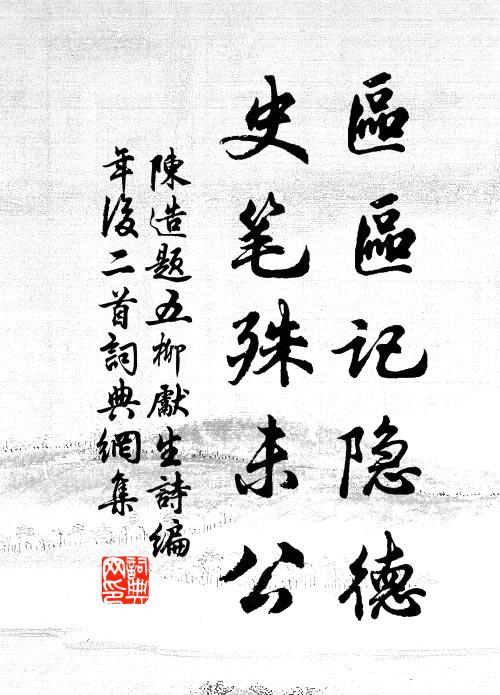 區區记隐德
史笔殊未公
陳造題五柳獻生詩編
年後二首詞典網集
詞典
网印